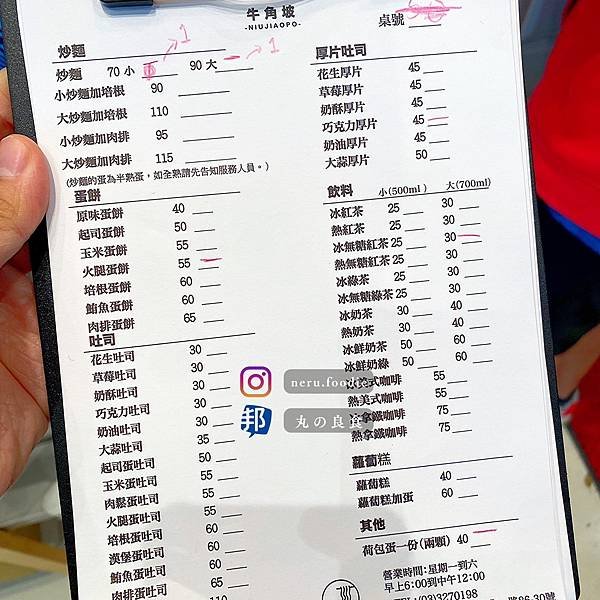 牛角坡
-NIUJIAOPO-
桌號
炒麵
炒麵 70 小 90 大
1
1
小炒麵加培根 90
大炒麵加培根 110
小炒麵加肉排 95
大炒麵加肉排 115
(炒麵的蛋為半熟蛋，如全熟請先告知服務人員。)
蛋餅
原味蛋餅 40
起司蛋餅 50
玉米蛋餅 55
火腿蛋餅 55
培根蛋餅 60
鮪魚蛋餅 60
肉排蛋餅 65
吐司
花生吐司 30
草莓吐司 30
奶酥吐司 30
巧克力吐司 30
奶油吐司 30
大蒜吐司 35
起司蛋吐司 50
玉米蛋吐司 55
肉鬆蛋吐司 55
火腿蛋吐司 55
培根蛋吐司 60
漢堡蛋吐司 60
鮪魚蛋吐司 60
肉排蛋吐司
110
厚片吐司
花生厚片 45
草莓厚片 45
奶酥厚片 45
巧克力厚片 45
奶油厚片 45
大蒜厚片 50
飲料 小(500ml) 大(700ml)
冰紅茶 25 30
熱紅茶 25 30
冰無糖紅茶 25 30
熱無糖紅茶 25 30
冰綠茶 25 30
冰無糖綠茶 25 30
冰奶茶 30 40
熱奶茶 30 40
冰鮮奶茶 50 60
冰鮮奶綠 50 60
美式咖啡 55
熱美式咖啡 55
冰拿鐵咖啡 75
熱拿鐵咖啡 75
蘿蔔糕
蘿蔔糕 40
蘿蔔糕加蛋 60
其他
荷包蛋一份(兩顆) 40
營業時間:星期一到六
早上6:00到中午12:00
TEL:(03)3270198
路86-30號
neru.foodie
邦
丸の良食